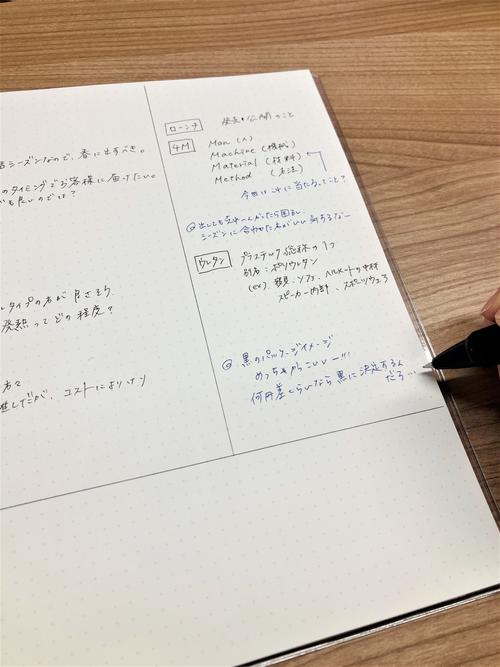 シーズンなので、春に出すべき。
のタイミングでお客様に届けたい。
も良いのでは？
タイプの方が良さそう
発熱ってどの程度？
方々
だが、コストによりけり
ローンチ 発表・公開のこと
4M Man (人)
Machine (機械)
Material (材料)
Method (方法)
今回はこれに当たるってこと？
出しても売れーんかったら困るし、
シーズンに合わせた方がいい
ウレタン プラスチック総称の1つ
別名：ポリウレタン
(ex). 寝具、ソファ、の中材
スピーカー内部、スポーツウェア
黒のパッケージイメージ
めっちゃかっこいいー!!!
何円差くらいなら黒に決定するん
だろ…